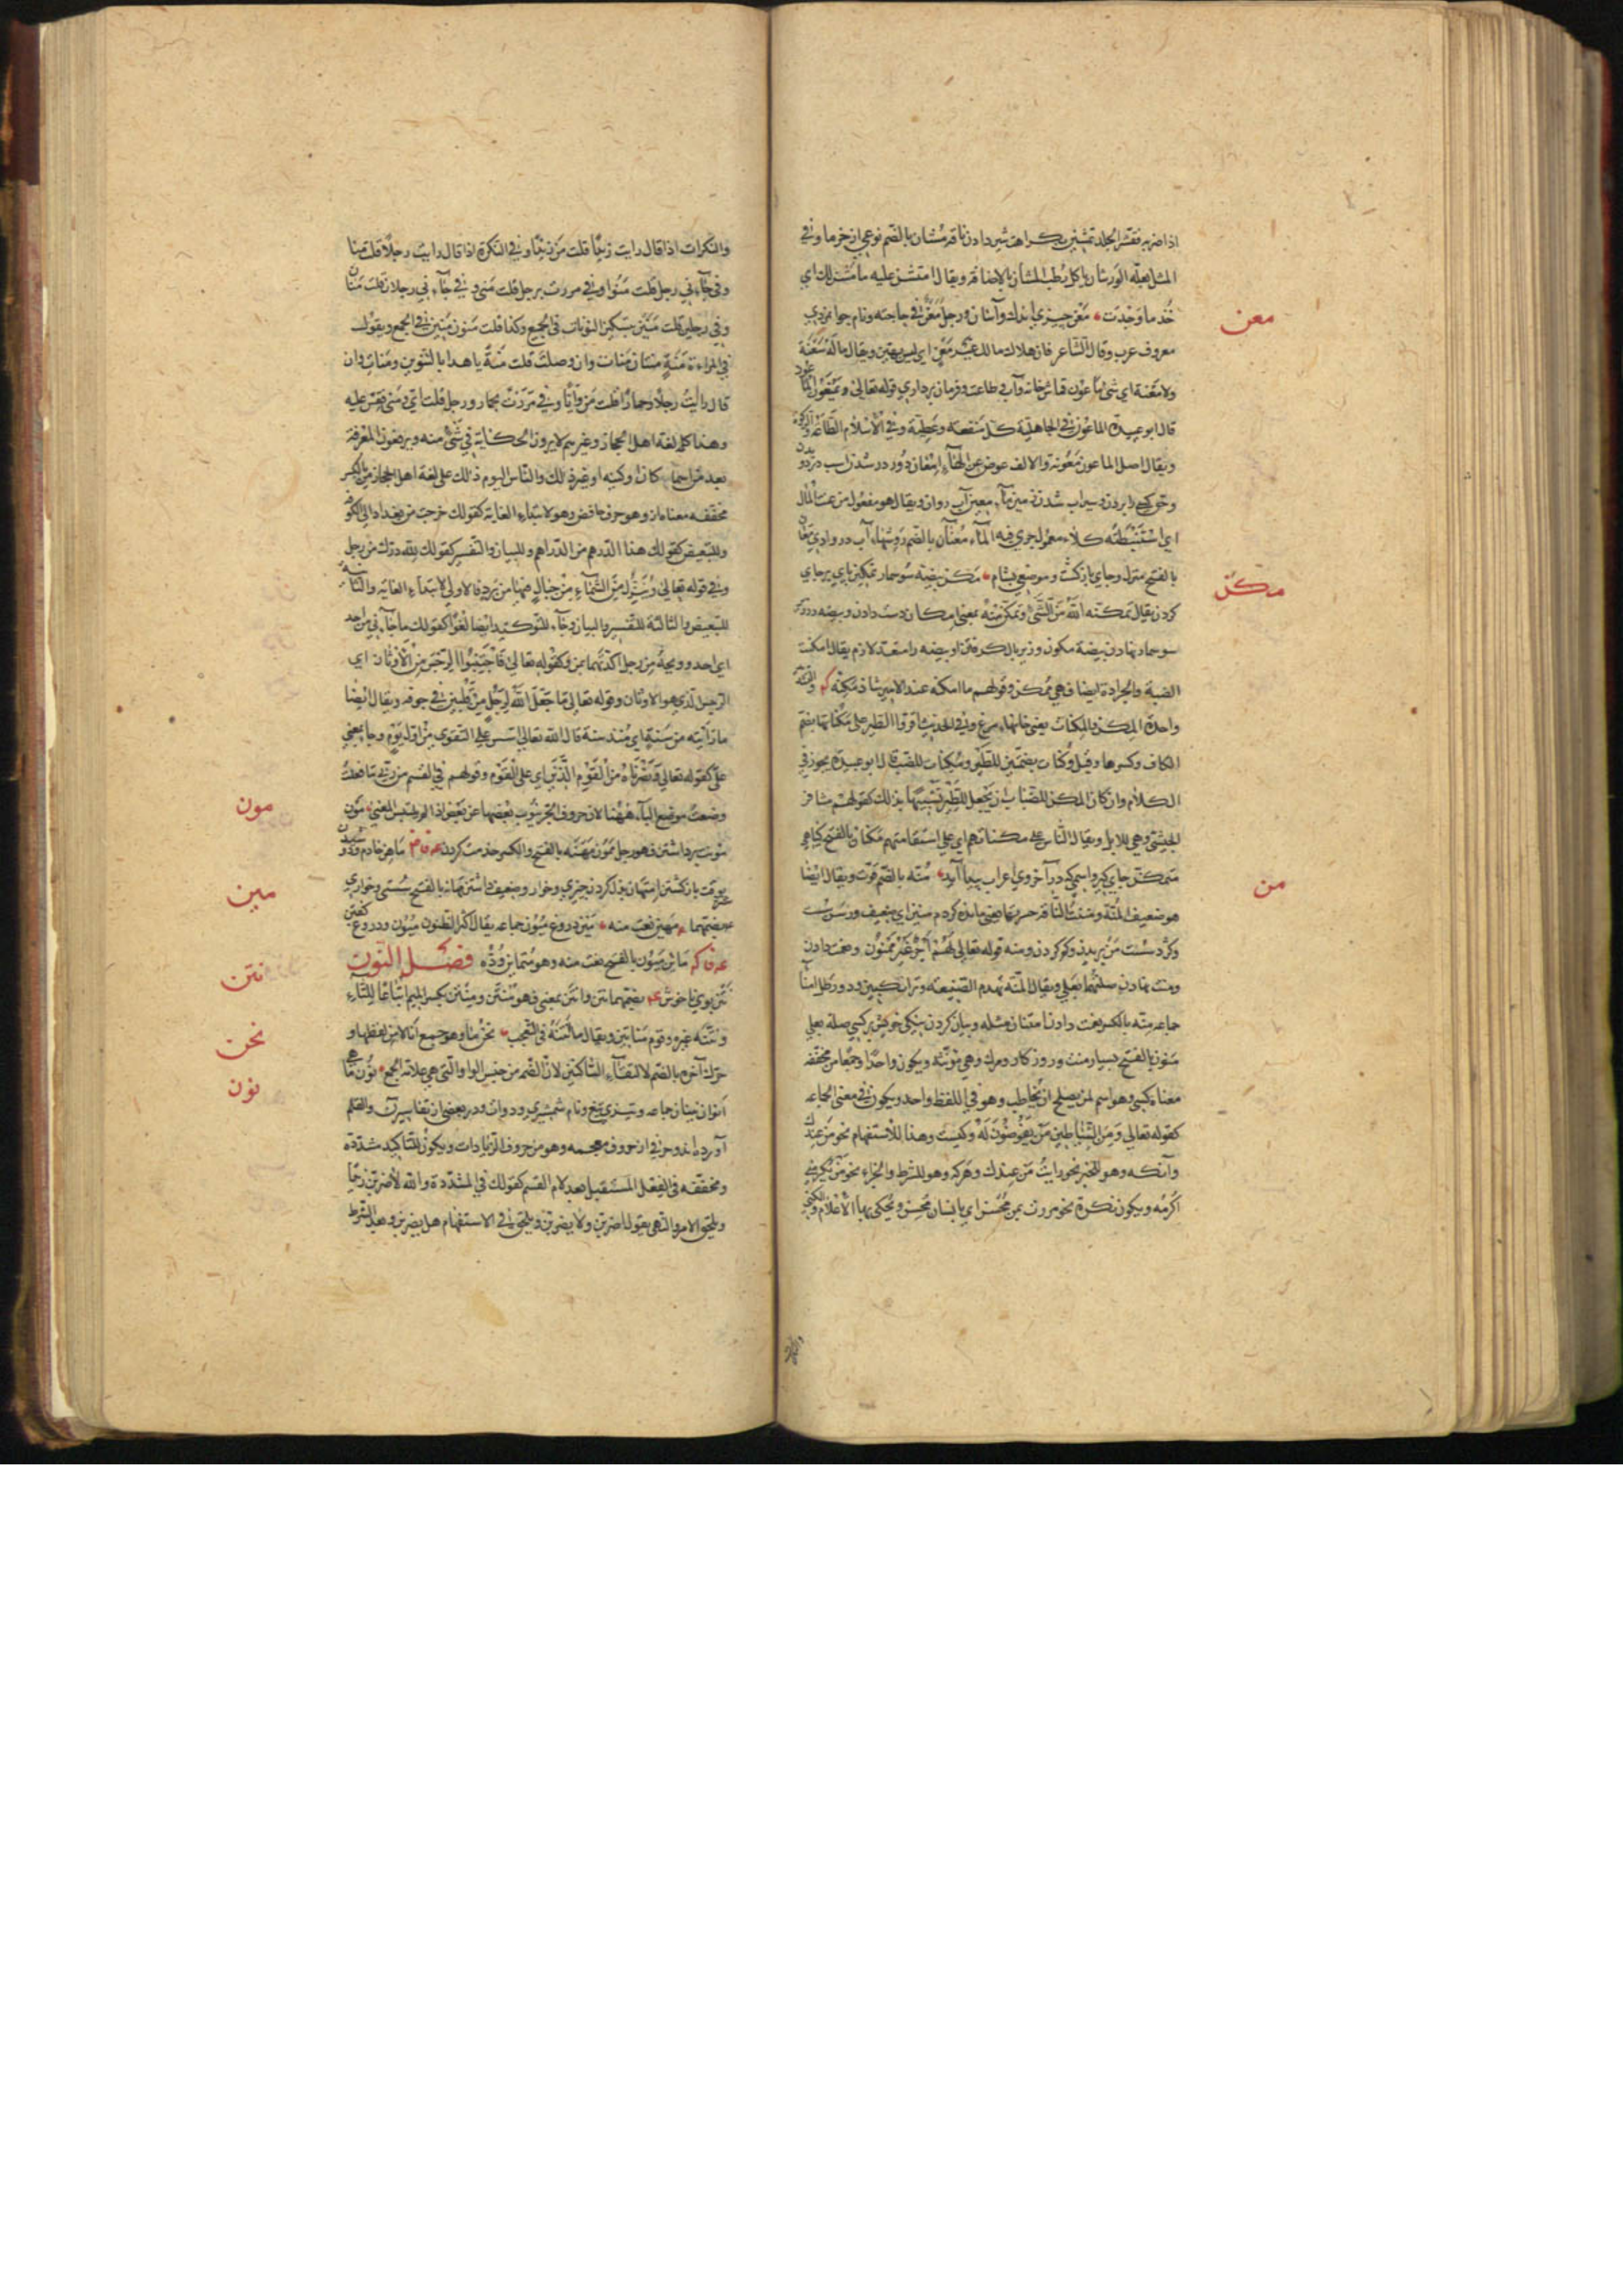 اذا ضربه فقشر الجلد تمشین بکراهت شیر دادن ناقه مشان بالضم نوعی از خرما وفی
المثل بعلة الورشان یاکل رطب المشان بالاضافة ویقال امتشن علیه ما مشن لک ای
خذ ما وجدت معن چیزی اندک وآسان ورجل معن فی حاجته ونام جوانمردی
معن
معروف عرب وقال الشاعر فان هلاک مالک غیر معن ای لیس بهین ویقال ماله سعنة
ولا معنة ای شئ ماعون قماش خانه وآب وطاعت وفرمان برداری قوله تعالی ویمنعون الماعون
قال ابو عبیدة الماعون فی الجاهلیة کل منفعة وعطیة وفی الاسلام الطاعة والزکوة
ویقال اصل الماعون معونة والالف عوض عن الهاء امعان دور در شدن اسب در دویدن
وحق کسی را بردن وسیراب شدن زمین ماء معین آب روان ویقال هو مفعول من عنت الماء
ای استنبطته کلاء ممعون جری فیه الماء معنان بالضم روشهاء آب در وادی معان
بالفتح منزل وجای بازگشت وموضعی بشام مکن بیضه سوسمار تمکین پای برجای
مکن
کردن یقال مکنه الله من الشئ وتمکن منه بمعنی امکان دست دادن وبیضه در
سوسمار نهادن بیضه مکون وزیر بال گرفتن او بیضه را متعد لازم یقال امکنت
الضبة والجرادة ایضا فهی ممکن وقولهم ما امکنه عند الامیر شاذ مکنه والمکنة
واحدة المکن والمکنات یعنی خانهاء مرغ وفی الحدیث اقروا الطیر علی مکناتها بضم
الکاف وکسرها وقیل وکنات بضمتین للطیر ومکنات للضب قال ابو عبیدة یجوز فی
الکلام وان کان المکن للضباب ان یجعل للطیر تشبیها بذلک کقولهم مشافر
الحبشی وهی للابل ویقال الناس علی مکناتهم ای علی استقامتهم مکنان بالفتح گیاهی
متمکن جای گیر واسمی که در آخر وی اعراب پیدا آید منه بالضم قوت ویقال ایضا
من
هو ضعیف المنة ومننت الناقة حسرتها یعنی مانده کردم منین ای ضعیف ورسن سست
وگرد سست من بریدن وکم کردن ومنه قوله تعالی لهم اجر غیر ممنون ونعمت دادن
ومنت نهادن صلتهما بعلی ویقال المنة تهدم الصنیعة وترانگبین ودو رطل امنا
جماعه منه بالکسر نعمت دادن امتنان مثله وبیان کردن نیکی خویش بر کسی صلة بعلی
منون بالفتح بسیار منت وروزگار ومرگ وهی مؤنثة ویکون واحدا وجمعا من مخففه
معناه کسی وهو اسم لمن یصلح ان یخاطب وهو فی اللفظ واحد ویکون فی معنی الجماعة
کقوله تعالی ومن الشیاطین من یغوصون له وکیست وهذا للاستفهام نحو من عندک
وآنکه وهو للخبر نحو رایت من عندک وهرکه وهو للشرط والجزاء نحو من یکرمنی
اکرمه ویکون نکرة نحو مررت بمن محسن ای بانسان محسن ویحکی بها الاعلام والکنی
والنکرات اذا قال رایت زیدا قلت من زیدا وفی النکرة اذا قال رایت رجلا قلت منا
وفی جاءنی رجل قلت منو وفی مررت برجل قلت منی وفی جاءنی رجلان قلت منان
وفی رجلین قلت منین بتسکین النونات فی الجمیع وکذا قلت منون منین فی الجمع ویقول
فی المراءة منه منتان منات وان وصلت قلت منة یا هذا بالتنوین ومنات وان
قال رایت رجلا وحمارا قلت من وایا وفی مررت بحمار ورجل قلت ای ومنی فقس علیه
وهذا کله لغة اهل الحجاز وغیرهم لا یرون الحکایة فی شئ منه ویرفعون المعرفة
بعد من اسما کان او کنیة او غیر ذلک والناس الیوم ذلک علی لغة اهل الحجاز من بالکسر
مخففه معناه از وهو حرف خافض وهو لابتداء الغایة کقولک خرجت من بغداد الی الکوفة
وللتبعیض کقولک هذا الدرهم من الدراهم وللبیان والتفسیر کقولک لله درک من رجل
وفی قوله تعالی وینزل من السماء من جبال فیها من برد فالاولی لابتداء الغایة والثانیة
للتبعیض والثالثة للتفسیر والبیان وجاء للتوکید ایضا لغوا کقولک ما جاءنی من احد
ای احد وویحه من رجل اکدتهما بمن وکقوله تعالی فاجتنبوا الرجس من الاوثان ای
الرجس الذی هو الاوثان وقوله تعالی ما جعل الله لرجل من قلبین فی جوفه ویقال ایضا
ما رایته من سنة ای منذ سنة قال الله تعالی اسس علی التقوی من اول یوم وجا بمعنی
علی کقوله تعالی ونصرناه من القوم الذین ای علی القوم وقولهم فی القسم من ربی ما فعلت
وضعت موضع الباء ههنا لان حروف الجر ینوب بعضها عن بعض اذا لم یلتبس المعنی مون
مون
مونت برداشتن فهو رجل ممون مهنه بالفتح والکسر خدمت کردن ماهن خادم ودوشیدن
بوقت باز گشتن امتهان بذل کردن چیزی وخوار وضعیف داشتن مهانة بالفتح سستی وخواری
بضمهما مهین نعت منه مین دروغ میون جماعه یقال اکثر الظنون میون ودروغ گفتن
مین
مائن میون بالفتح نعت منه وهو متماین وده فصل النون
نتن بوی ناخوش بضمهما نتن وانتن بمعنی فهو منتن ومنتن بکسر المیم اتباعا للتاء
نتن
ونتنه غیره وقوم مناتین ویقال ما انتنه فی التعجب نحن ما وهو جمع انا لا من لفظها و
نحن
حرک آخره بالضم لالتقاء الساکنین لان الضم من جنس الواو التی هی علامة الجمع نون ماهی
نون
انوان نینان جماعه وتیزی تیغ ونام شمشیری ودوات ودر بعضی از تفاسیر ن والقلم
آورده اند وحرفی از حروف معجمه وهو من حروف الزیادات ویکون للتاکید مشددة
ومخففه فی الفعل المستقبل بعد لام القسم کقولک فی المشددة والله لاضربن زیدا
ویلحق الامر والنهی یقول اضربن ولا یضربن ویلحق فی الاستفهام هل یضربن وبعد الشرط